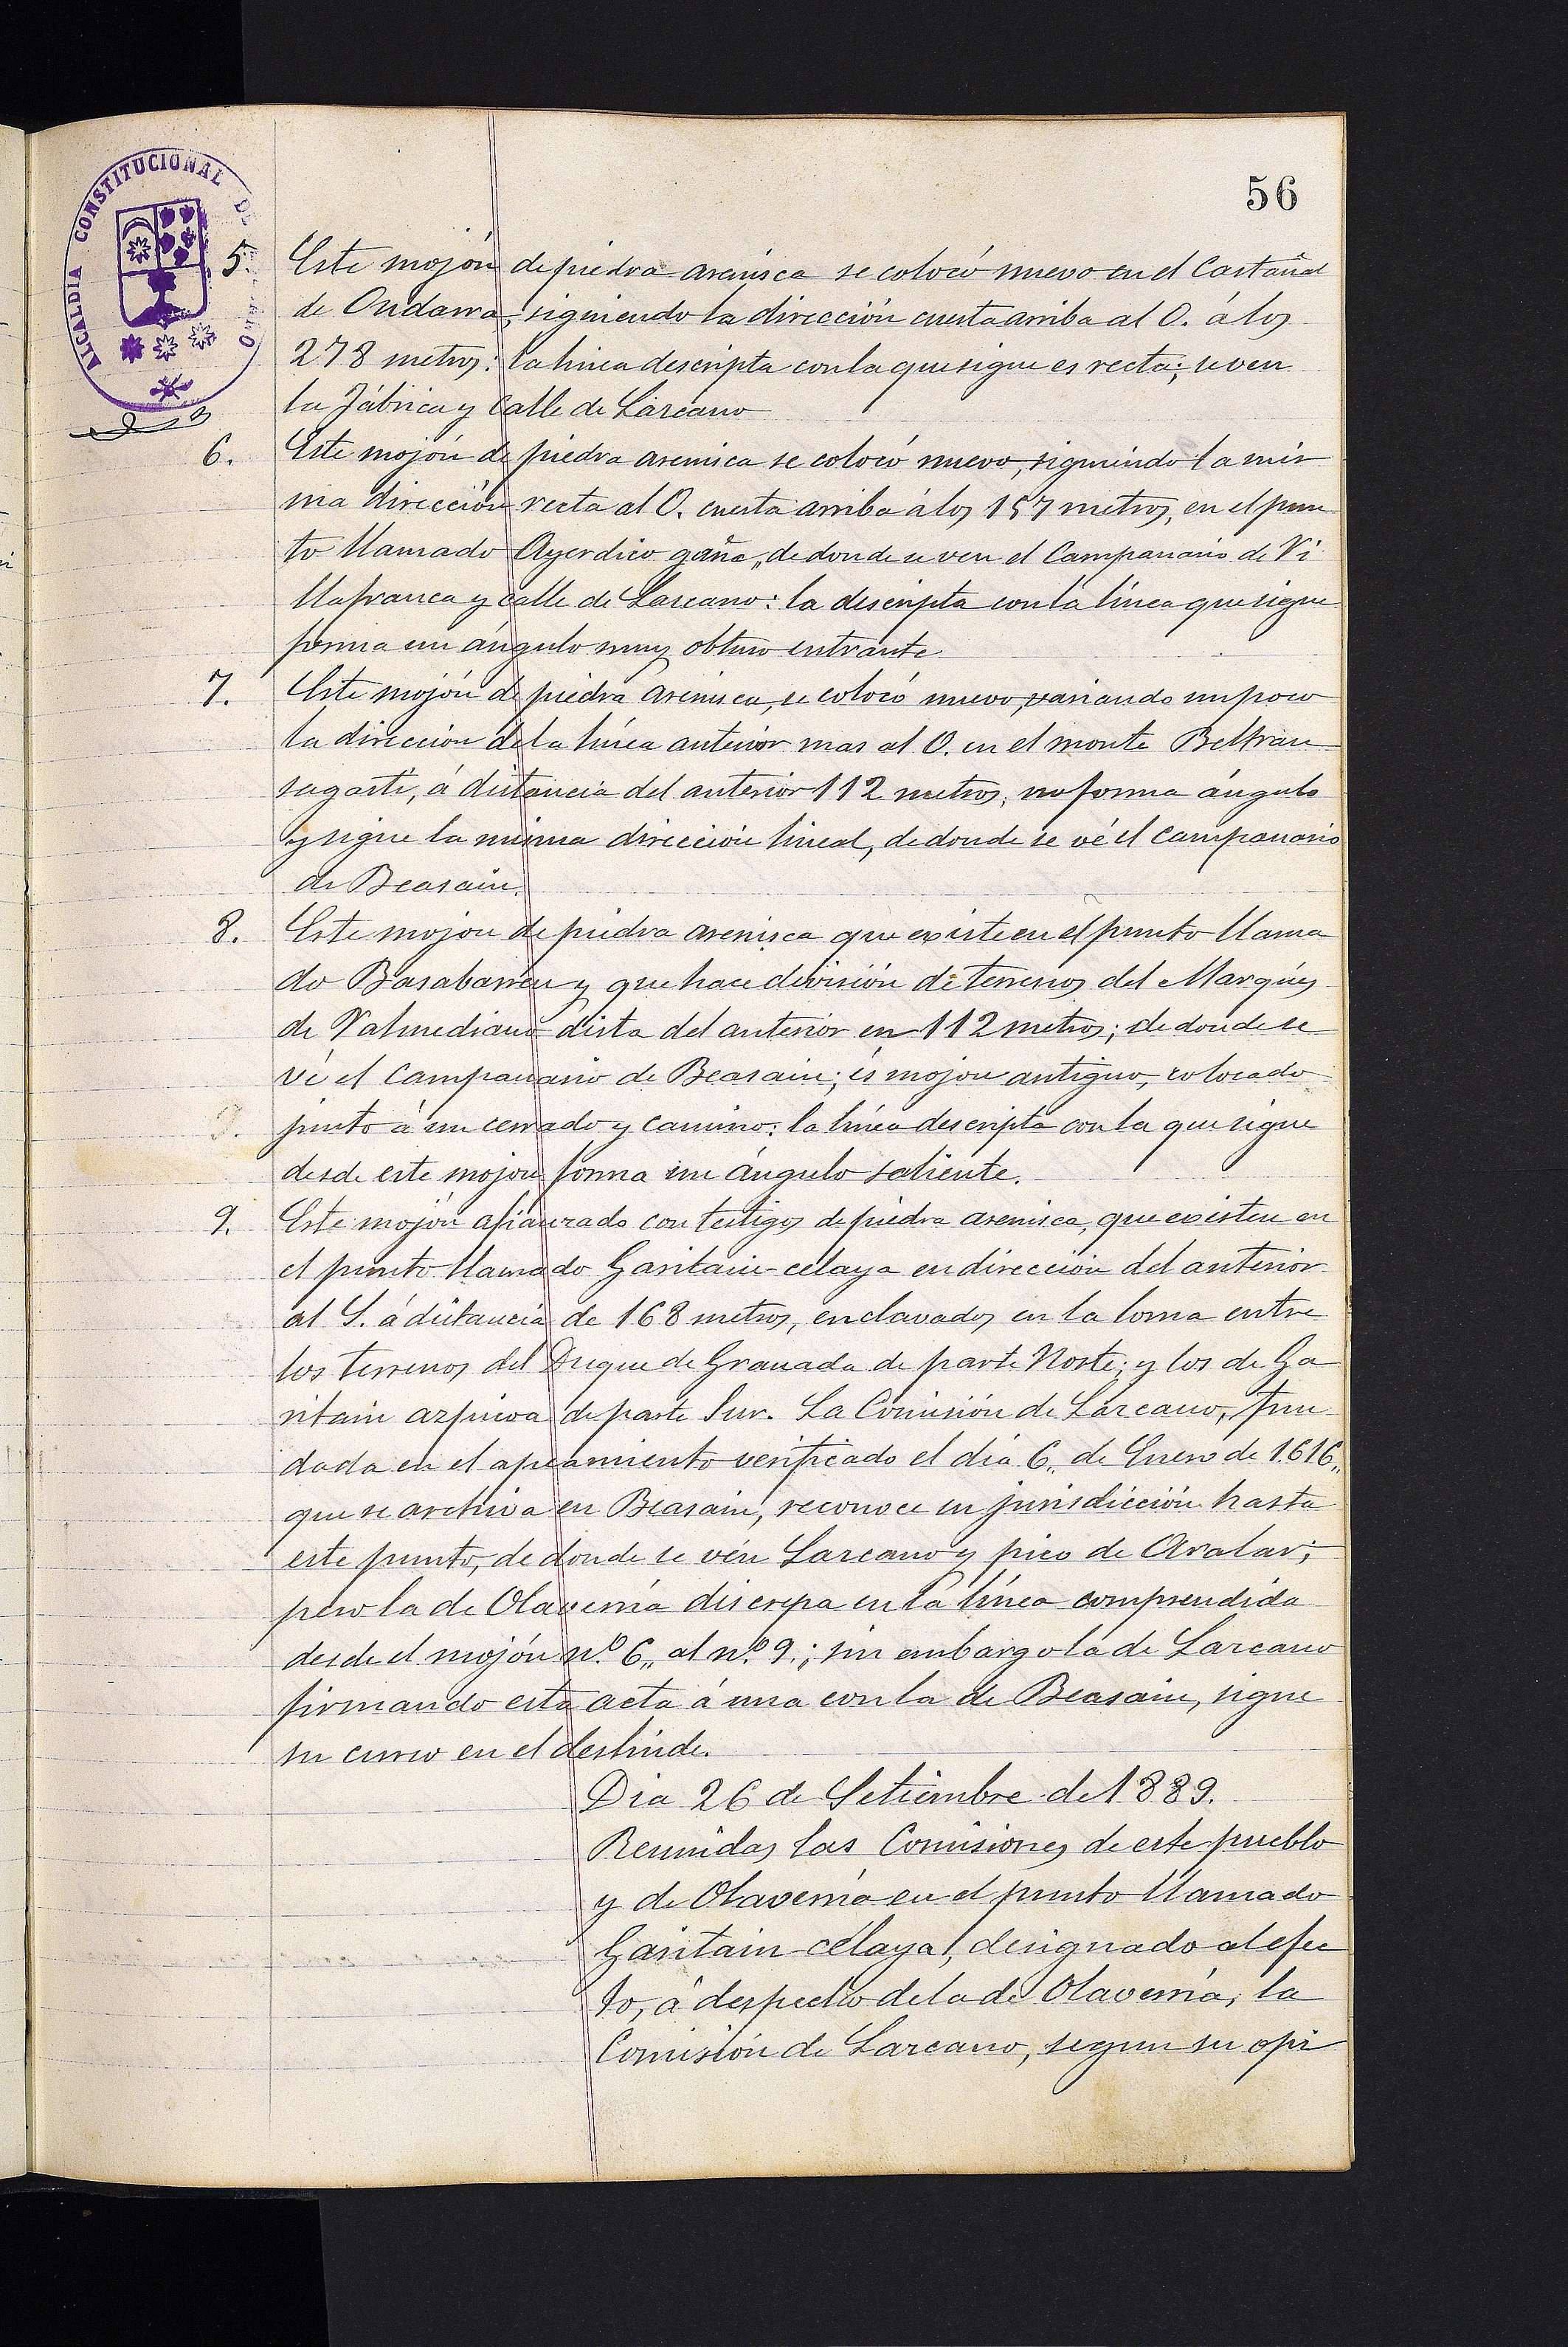 56
ALCALDIA CONSTITUCIONAL DE
5. Este mojón de piedra arenisca se colocó nuevo en el Castañal
de Ondarra, siguiendo la dirección cuesta arriba al O. á los
278 metros: la linea descripta con la que sigue es recta; se ven
la Fábrica y Calle de Lazcano
6. Este mojón de piedra arenisca se colocó nuevo, siguiendo la mis
ma dirección recta al O. cuesta arriba á los 157 metros, en el pun
to llamado Ayerdico gaña, de donde se ven el Campanario de Vi
llafranca y calle de Lazcano: la descripta con la línea que sigue
forma un ángulo muy obtuso entrante
7. Este mojón de piedra arenisca, se colocó nuevo, variando un poco
la dirección de la línea anterior mas al O. en el monte Beltran
sagasti, á distancia del anterior 112 metros, no forma ángulo
y sigue la misma dirección lineal, de donde se vé el campanario
de Beasain.
8. Este mojon de piedra arenisca que existe en el punto llama
do Basabarren y que hace división de terrenos del Marqués
de Valmediano dista del anterior en 112 metros; de donde se
vé el Campanario de Beasain; és mojon antiguo, colocado
junto á un cerrado y camino: la línea descripta con la que sigue
desde este mojon forma un ángulo saliente.
9. Este mojón afianzado con testigos de piedra arenisca, que existen en
el punto llamado Garitain-celaya en dirección del anterior
al S. á distancia de 168 metros, enclavados en la loma entre
los terrenos del Duque de Granada de parte Norte; y los de Ga
ritain azpicoa de parte Sur. La Comisión de Lazcano, fun
dada en el apeamiento verificado el día 6,, de Enero de 1616,,
que se archiva en Beasain, reconoce su jurisdicción hasta
este punto, de donde se vén Lazcano y pico de Aralar;
pero la de Olaverría discrepa en la línea comprendida
desde el mojón nº. 6,, al nº. 9.; sin embargo la de Lazcano
firmando esta acta á una con la de Beasain, sigue
su curso en el deslinde.
Dia 26 de Setiembre de 1889.
Reunidas las Comisiones de este pueblo
y de Olaverría en el punto llamado
Garitain-celaya, designado al efec
to, á despecho de la de Olaverría, la
Comisión de Lazcano, segun su opi